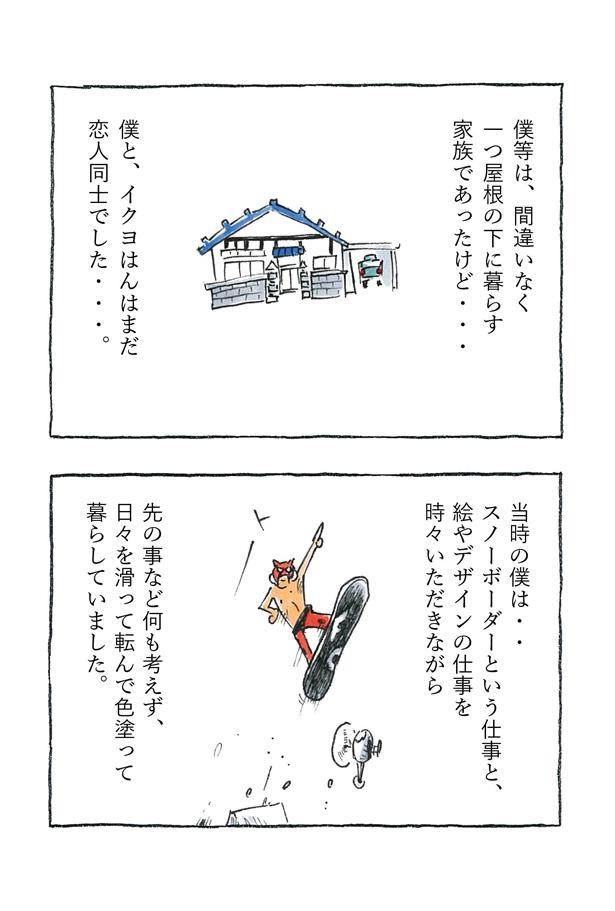 僕等は、間違いなく
一つ屋根の下に暮らす
家族であったけど・・・
僕と、イクヨはんはまだ
恋人同士でした・・・。
当時の僕は・・
スノーボーダーという仕事と、
絵やデザインの仕事を
時々いただきながら
先の事など何も考えず、
日々を滑って転んで色塗って
暮らしていました。